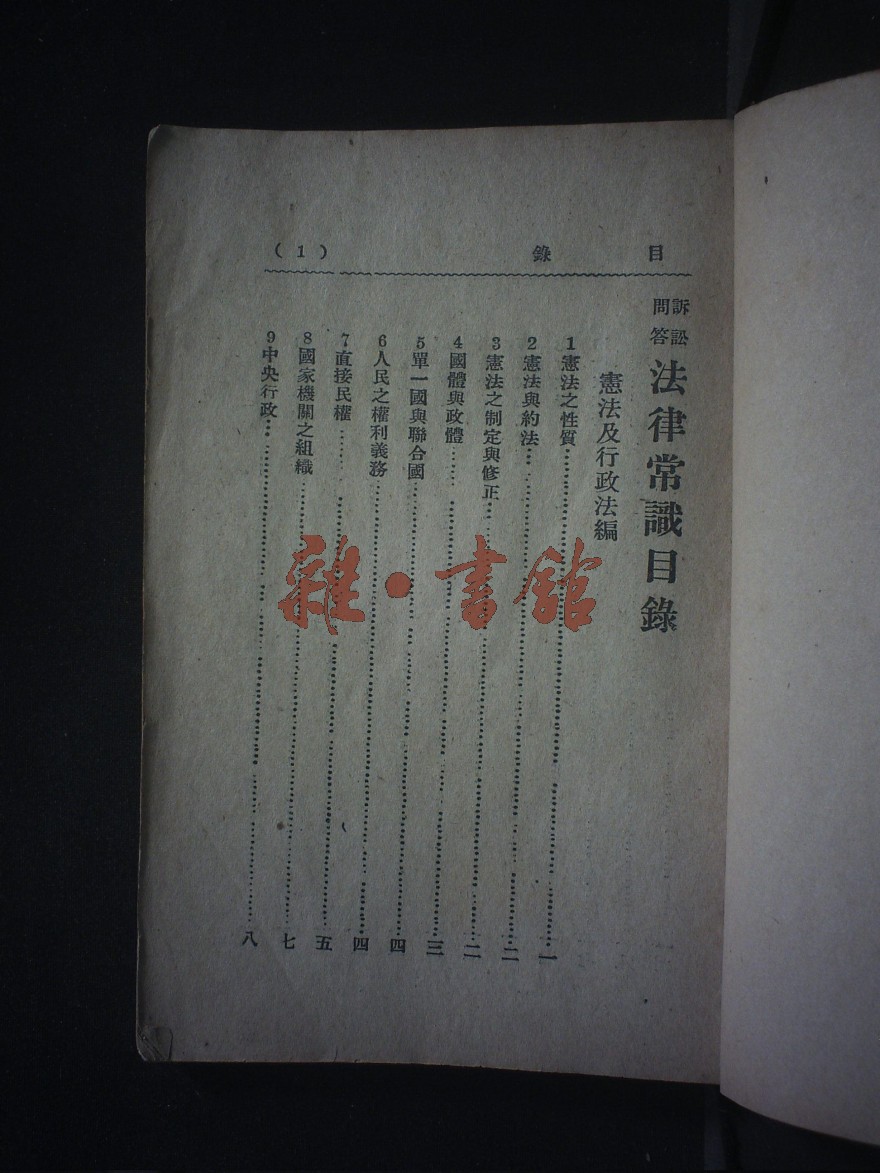 目錄
(1)
訴訟問答
法律常識目錄
憲法及行政法編
1憲法之性質……一
2憲法與約法……二
3憲法之制定與修正……二
4國體與政體……三
5單一國與聯合國……四
6人民之權利義務……四
7直接民權……五
8國家機關之組織……七
9中央行政……八
雜·書館